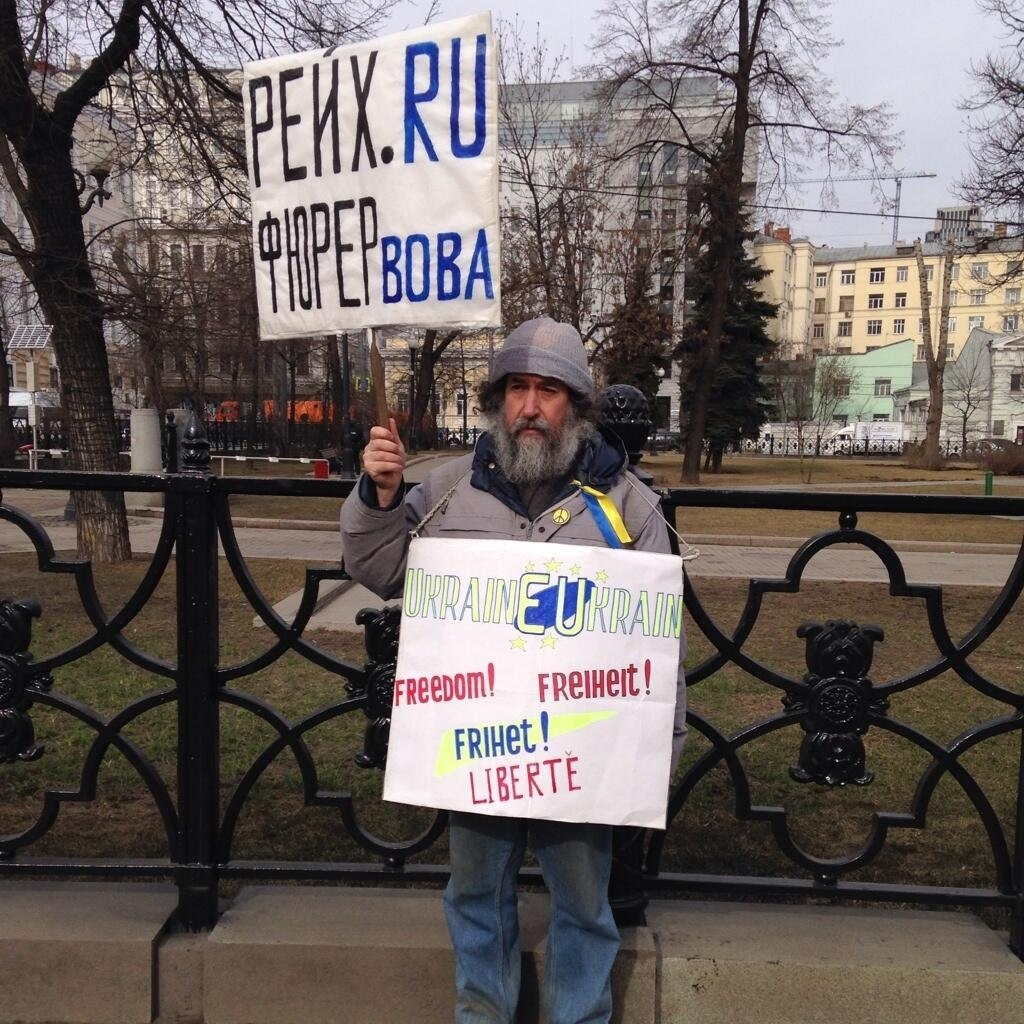 РЕЙХ.RU
ФЮРЕР ВОВА
UKRAINEUKRAIN
FREEDOM! FREIHEIT!
FRIHET!
LIBERTĚ